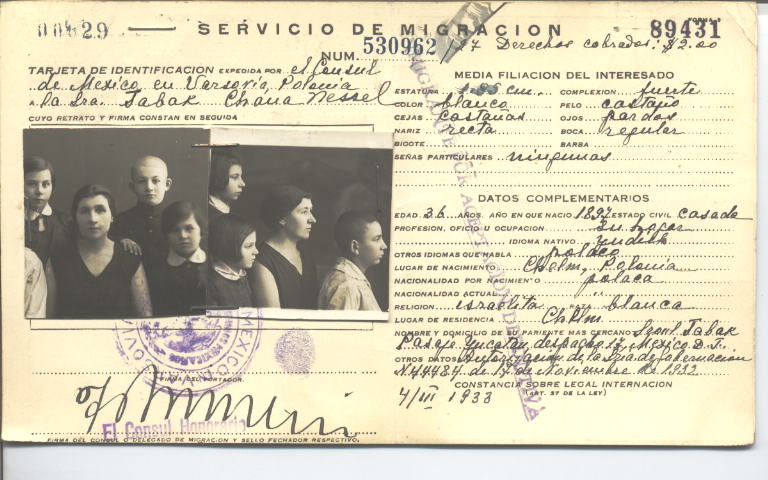 00629 — SERVICIO DE MIGRACION
FORMA 5
89431
NUM. 530962 /17 Derechos cobrados: $2.00
TARJETA DE IDENTIFICACION EXPEDIDA POR el Consul
de Mexico en Varsovia, Polonia
A la Sra. Tabak Chana Nessel
CUYO RETRATO Y FIRMA CONSTAN EN SEGUIDA
FIRMA DEL PORTADOR.
El Consul Honorario
FIRMA DEL CONSUL O DELEGADO DE MIGRACION Y SELLO FECHADOR RESPECTIVO.
MEDIA FILIACION DEL INTERESADO
ESTATURA cm. COMPLEXION fuerte
COLOR blanco PELO castaño
CEJAS castañas OJOS pardos
NARIZ recta BOCA regular
BIGOTE BARBA
SEÑAS PARTICULARES ningunas
DATOS COMPLEMENTARIOS
EDAD 36 AÑOS. AÑO EN QUE NACIO 1897 ESTADO CIVIL casada
PROFESION, OFICIO U OCUPACION Su hogar
IDIOMA NATIVO yudish
OTROS IDIOMAS QUE HABLA polaco
LUGAR DE NACIMIENTO Chelm, Polonia
NACIONALIDAD POR NACIMIENTO polaca
NACIONALIDAD ACTUAL
RELIGION israelita RAZA blanca
LUGAR DE RESIDENCIA Chelm
NOMBRE Y DOMICILIO DE SU PARIENTE MAS CERCANO Szmil Tabak
Pasaje Yucatan despacho 17, Mexico D. F.
OTROS DATOS Autorizacion de la Sria. de Gobernacion
N 44484 de 17 de Noviembre de 1932
CONSTANCIA SOBRE LEGAL INTERNACION
(ART. 57 DE LA LEY)
4/III 1933